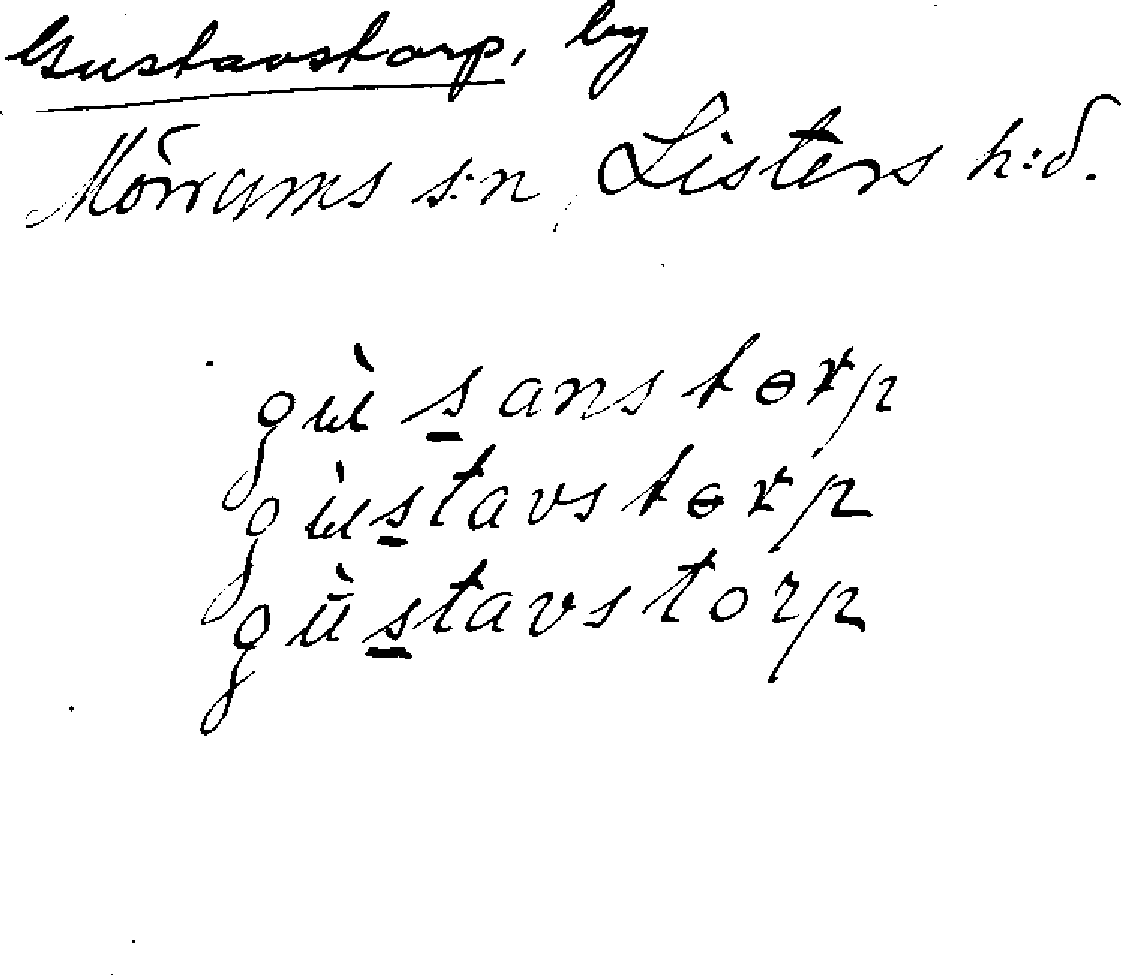 Gustavstorp, by
Mörrums s:n, Listers h:d.
gùsanstɵrp
gùstavstɵrp
gùstavstorp